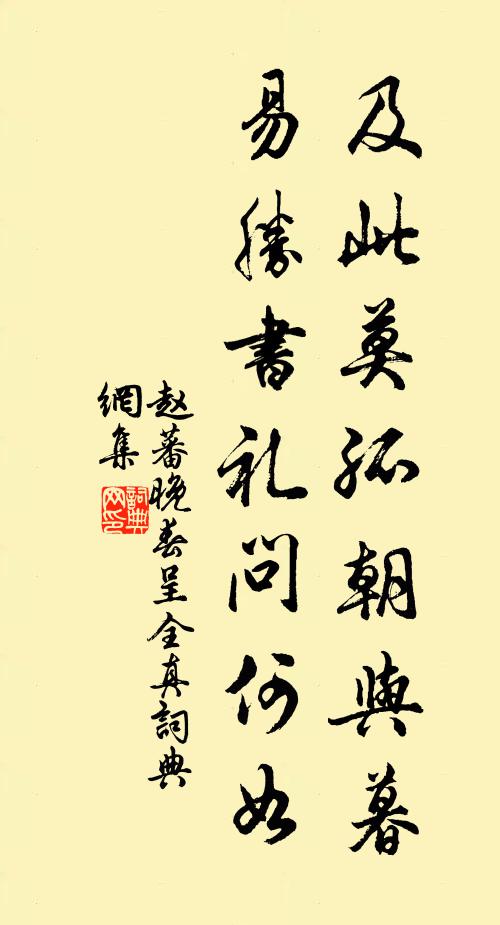 及此莫孤朝與暮
易勝書礼問何如
赵蕃晚春呈全真詞典
網集
詞典
网印